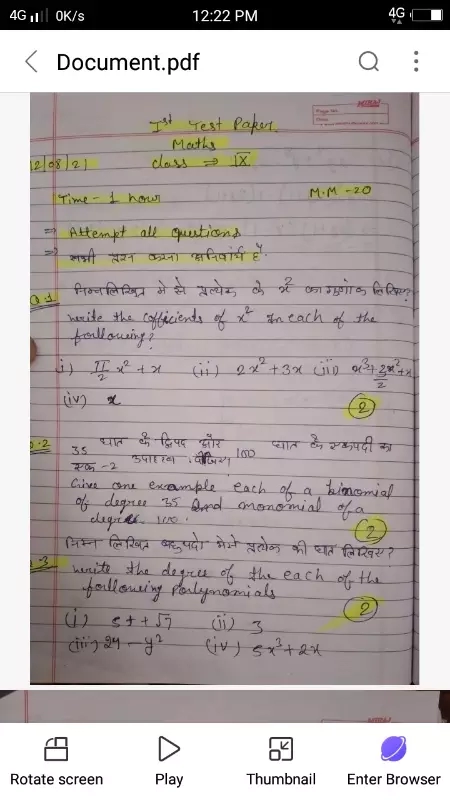 4G 0K/s 12:22 PM 4G
Document.pdf
Ist Test Paper
Maths
12/08/21 class ⇒ IX
Time - 1 hour M.M - 20
⇒ Attempt all questions
⇒ सभी प्रश्न करना अनिवार्य है
Q.1 निम्नलिखित में से प्रत्येक के x² का गुणांक लिखिए?
write the cofficients of x² in each of the
following?
i) π/2 x² + x (ii) 2x² + 3x (iii)
(iv) x 2
Q.2 35 घात के द्विपद और 100 घात के एकपदी का
एक-2 उदाहरण दीजिए
Give one example each of a binomial
of degree 35 and monomial of a
degree 100. 2
निम्न लिखित बहुपदो मेसे प्रत्येक की घात लिखिए?
3 write the degree of the each of the
following polynomials 2
(i) 5t + √7 (ii) 3
(iii) - y² (iv) 5x³ + 2x
Rotate screen Play Thumbnail Enter Browser